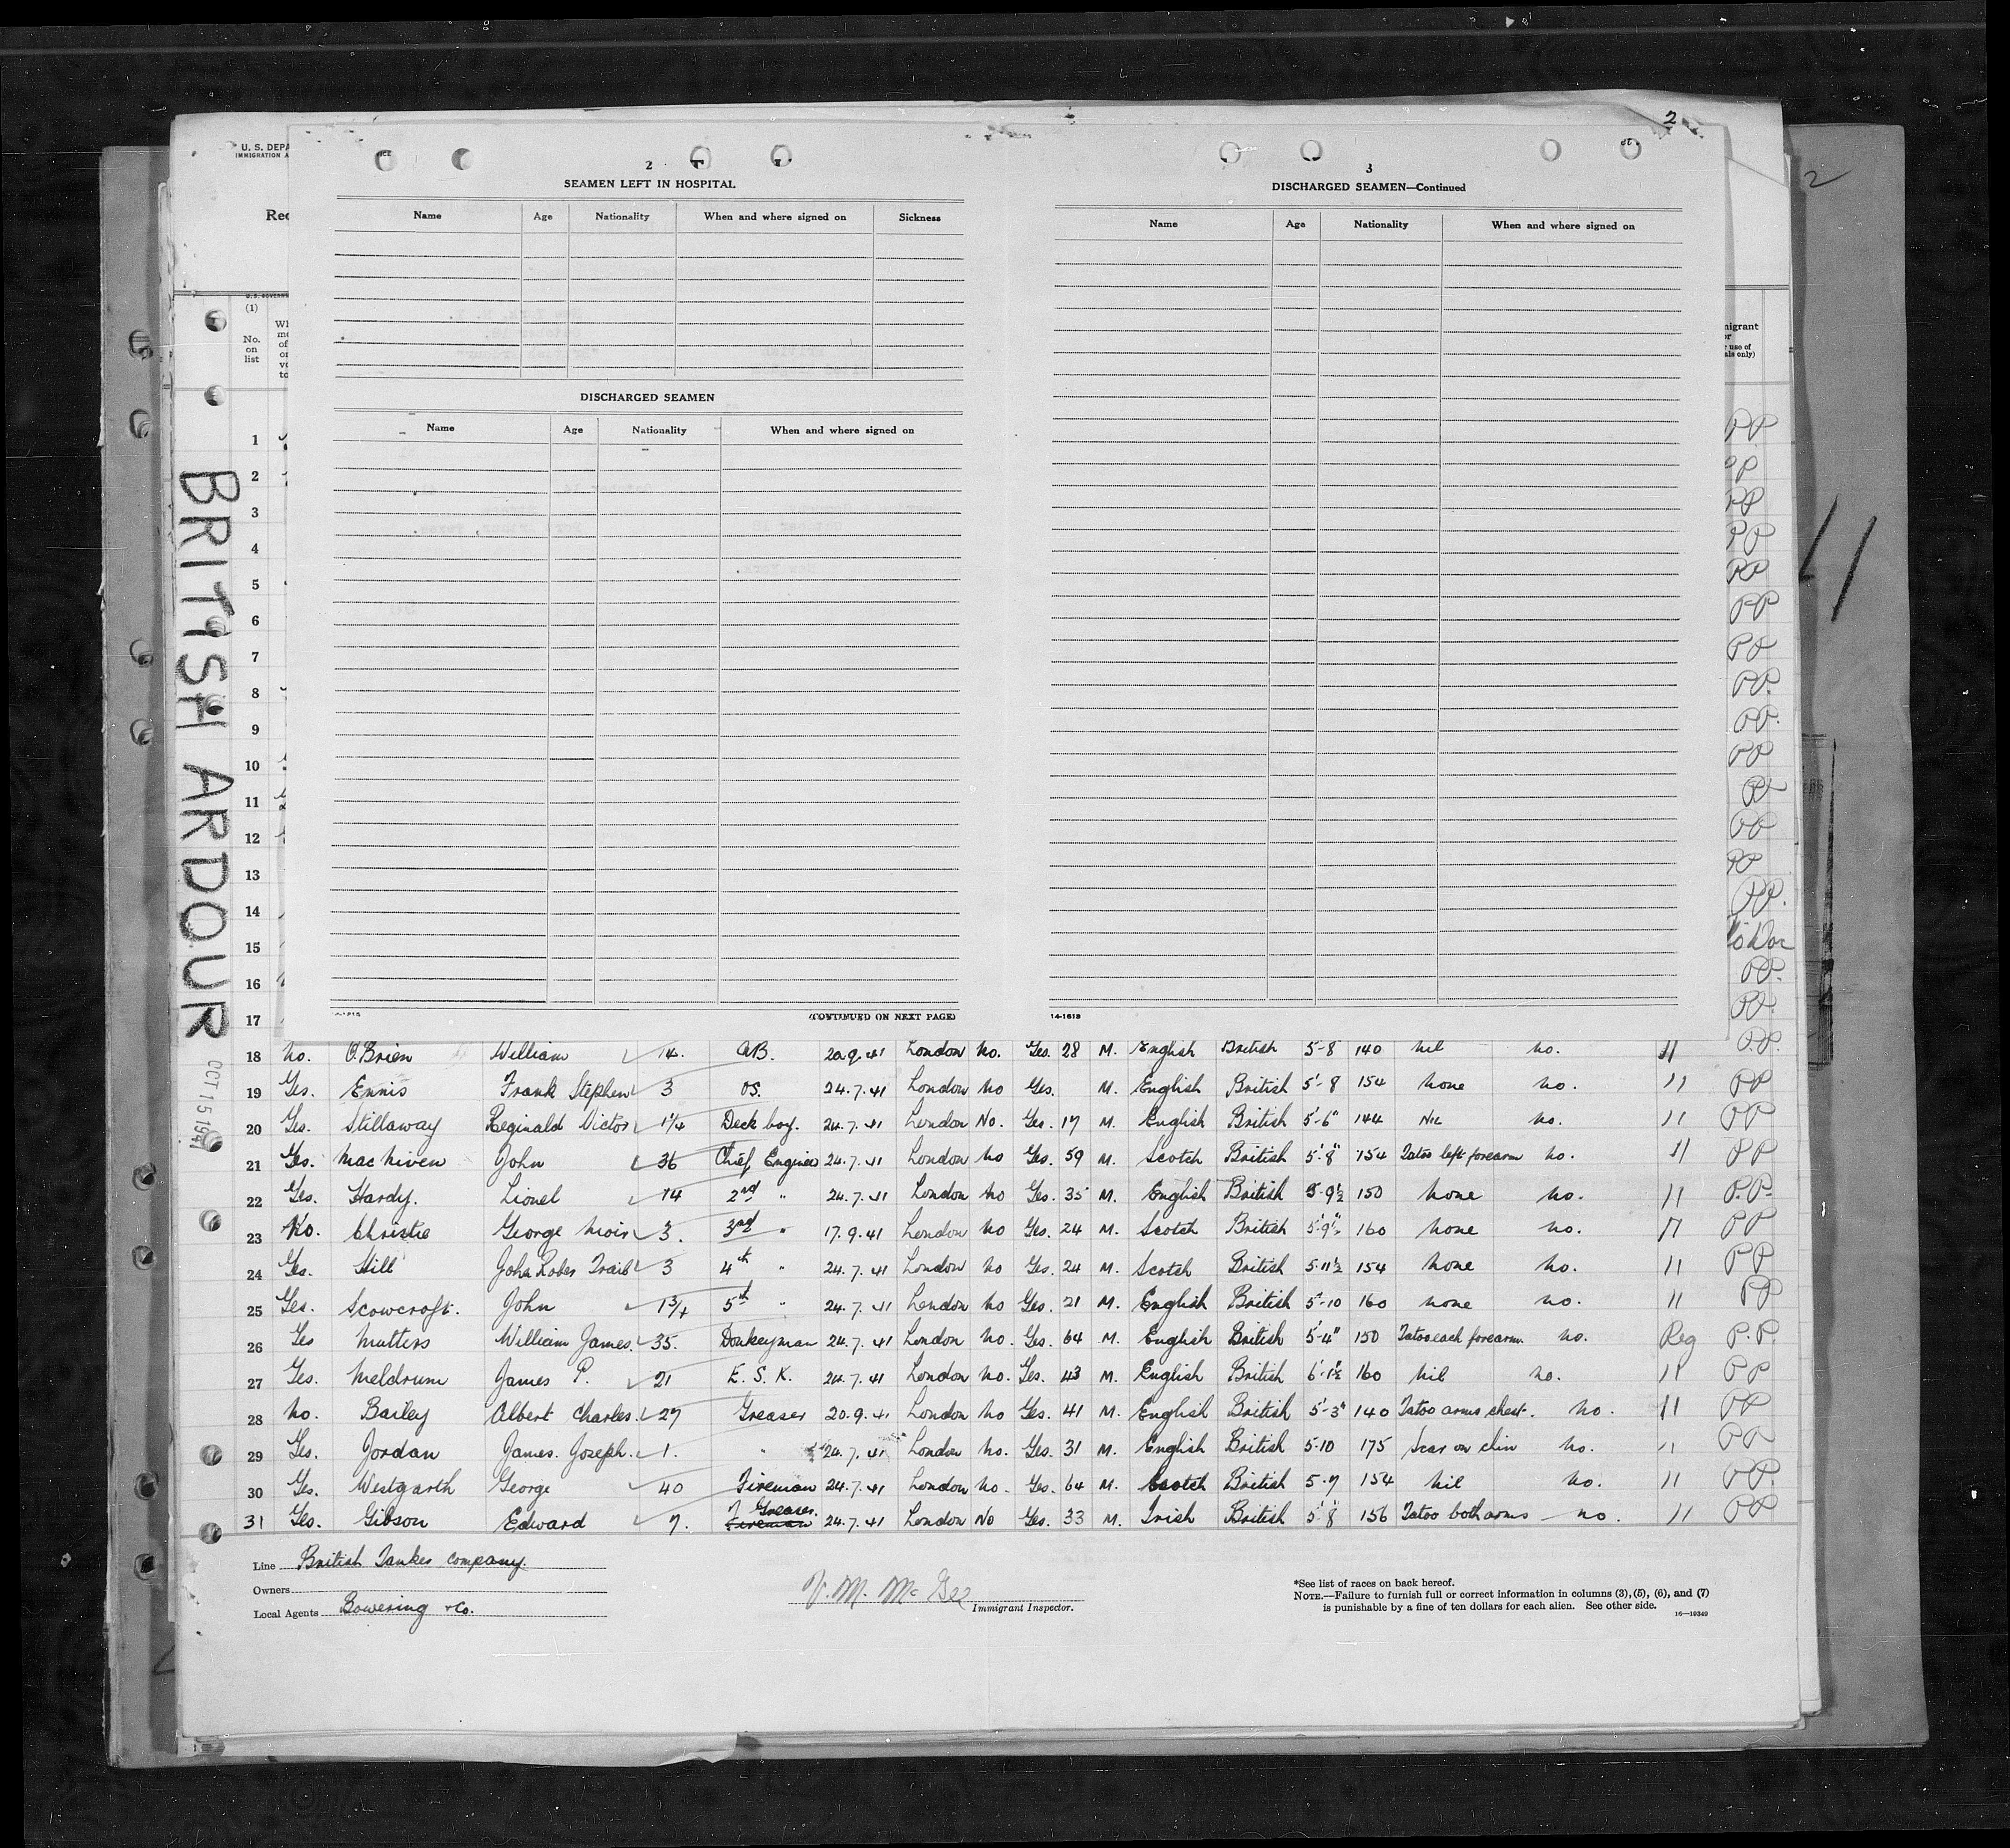 2
U. S. DEPA
IMMIGRATION A
Rec
2
SEAMEN LEFT IN HOSPITAL
Name Age Nationality When and where signed on Sickness
DISCHARGED SEAMEN
Name Age Nationality When and where signed on
(CONTINUED ON NEXT PAGE)
3
DISCHARGED SEAMEN—Continued
Name Age Nationality When and where signed on
14-1613
2
11
(1)
No.
on
list
BRITISH ARDOUR
OCT 15 1941
1 PP
2 PP
3 PP
4 PP
5 PP
6 PP
7 PP
8 PP.
9 PP.
10 PP
11 PP
12 PP
13 PP
14 PP.
15
16 PP.
17 PP.
18 No. O'Brien William 14. AB. 20.9.41 London No. Yes. 28 M. English British 5-8 140 nil no. 11 P.P.
19 Yes. Ennis Frank Stephen 3 OS. 24.7.41 London No Yes. M. English British 5'-8 154 none no. 11 PP
20 Yes. Stillaway Reginald Victor 1¼ Deck boy. 24.7.41 London No. Yes. 17 M. English British 5'-6" 144 Nil no. 11 PP
21 Yes. MacNiven John 36 Chief Engineer 24.7.41 London No Yes. 59 M. Scotch British 5'-8" 154 Tatoo left forearm no. 11 PP
22 Yes. Hardy. Lionel 14 2nd " 24.7.41 London No Yes. 35 M. English British 5-9½ 150 none no. 11 P.P.
23 No. Christie George Moir 3. 3rd " 17.9.41 London No Yes. 24 M. Scotch British 5'-9½ 160 none no. 11 PP
24 Yes. Hill John 3 4th " 24.7.41 London No Yes. 24 M. Scotch British 5-11½ 154 none no. 11 PP
25 Yes. Scowcroft. John 1¾ 5th " 24.7.41 London No Yes. 21 M. English British 5'-10 160 none no. 11 PP
26 Yes Mutters William James. 35. Donkeyman 24.7.41 London No. Yes. 64 M. English British 5'-4" 150 Tatoo each forearm. no. Reg P.P.
27 Yes. Meldrum James P. 21 E. S. K. 24.7.41 London No. Yes. 43 M. English British 6'-1½ 160 nil no. 11 PP
28 No. Bailey Albert Charles. 27 Greaser 20.9.41 London No Yes. 41 M. English British 5'-3" 140 Tatoo arms chest. no. 11 PP
29 Yes. Jordan James. Joseph. 1. " 24.7.41 London No. Yes. 31 M. English British 5-10 175 Scar on chin no. 11 PP
30 Yes. Westgarth George 40 Fireman 24.7.41 London No. Yes. 64 M. Scotch British 5-7 154 nil no. 11 PP.
31 Yes. Gibson Edward 7. Fireman Greaser. 24.7.41 London No Yes. 33 M. Irish British 5'8" 156 Tatoo both arms - no. 11 PP
Line British Tanker Company.
Owners
Local Agents Bowering & Co.
V. M. McGee
Immigrant Inspector.
*See list of races on back hereof.
NOTE.—Failure to furnish full or correct information in columns (3), (5), (6), and (7)
is punishable by a fine of ten dollars for each alien. See other side.
16—10349